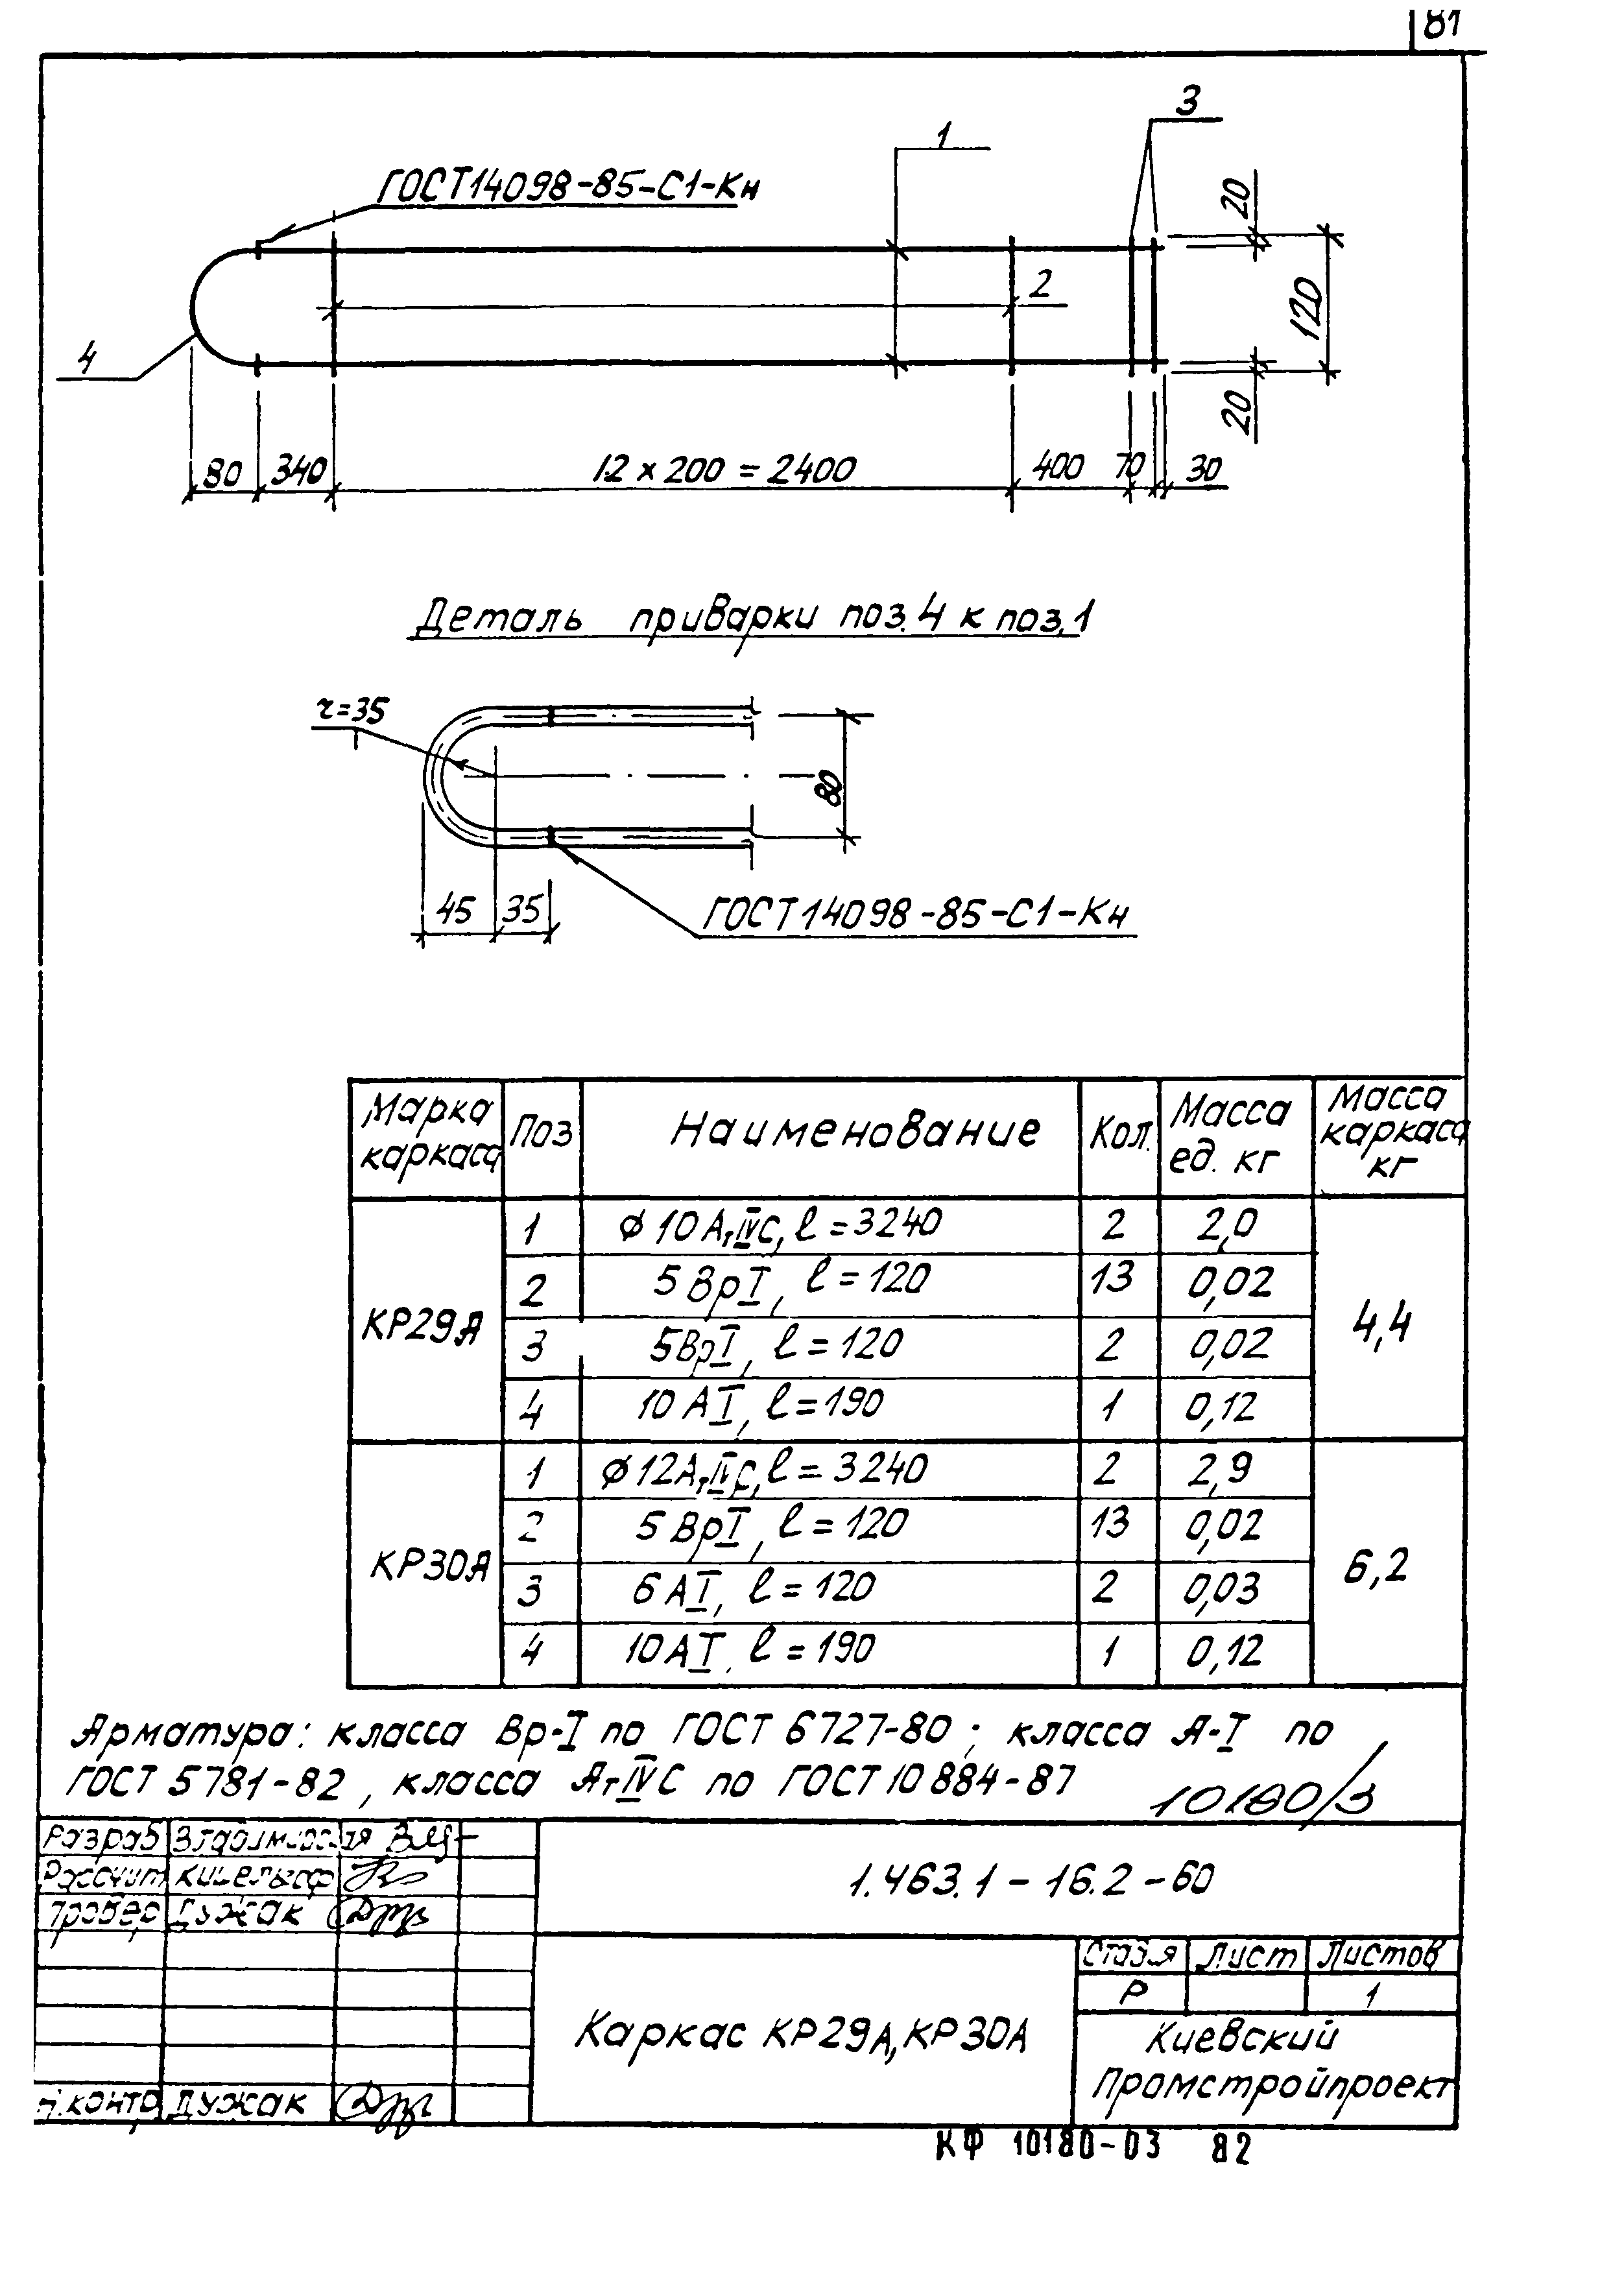 81
3
1
ГОСТ14098-85-С1-Кн
20
2
120
4
20
80 340 12 x 200 = 2400 400 70 30
Деталь приварки поз.4 к поз.1
r=35
80
45 35
ГОСТ14098-85-С1-Кн
Марка каркаса Поз Наименование Кол. Масса ед. кг Масса каркаса кг
КР29А 4,4
1 ϕ10АтIVС, ℓ=3240 2 2,0
2 5ВрI, ℓ=120 13 0,02
3 5ВрI, ℓ=120 2 0,02
4 10АI, ℓ=190 1 0,12
КР30А 6,2
1 ϕ12АтIVС, ℓ=3240 2 2,9
2 5ВрI, ℓ=120 13 0,02
3 6АI, ℓ=120 2 0,03
4 10АI, ℓ=190 1 0,12
Арматура: класса Вр-I по ГОСТ 6727-80; класса А-I по
ГОСТ 5781-82, класса АтIVС по ГОСТ 10884-87
10180/3
Разраб
Рассчит
Провер Дужак
1.463.1-16.2-60
Стадия Лист Листов
Р 1
Каркас КР29А, КР30А
Киевский
Промстройпроект
Н.контр Дужак
КФ 10180-03 82